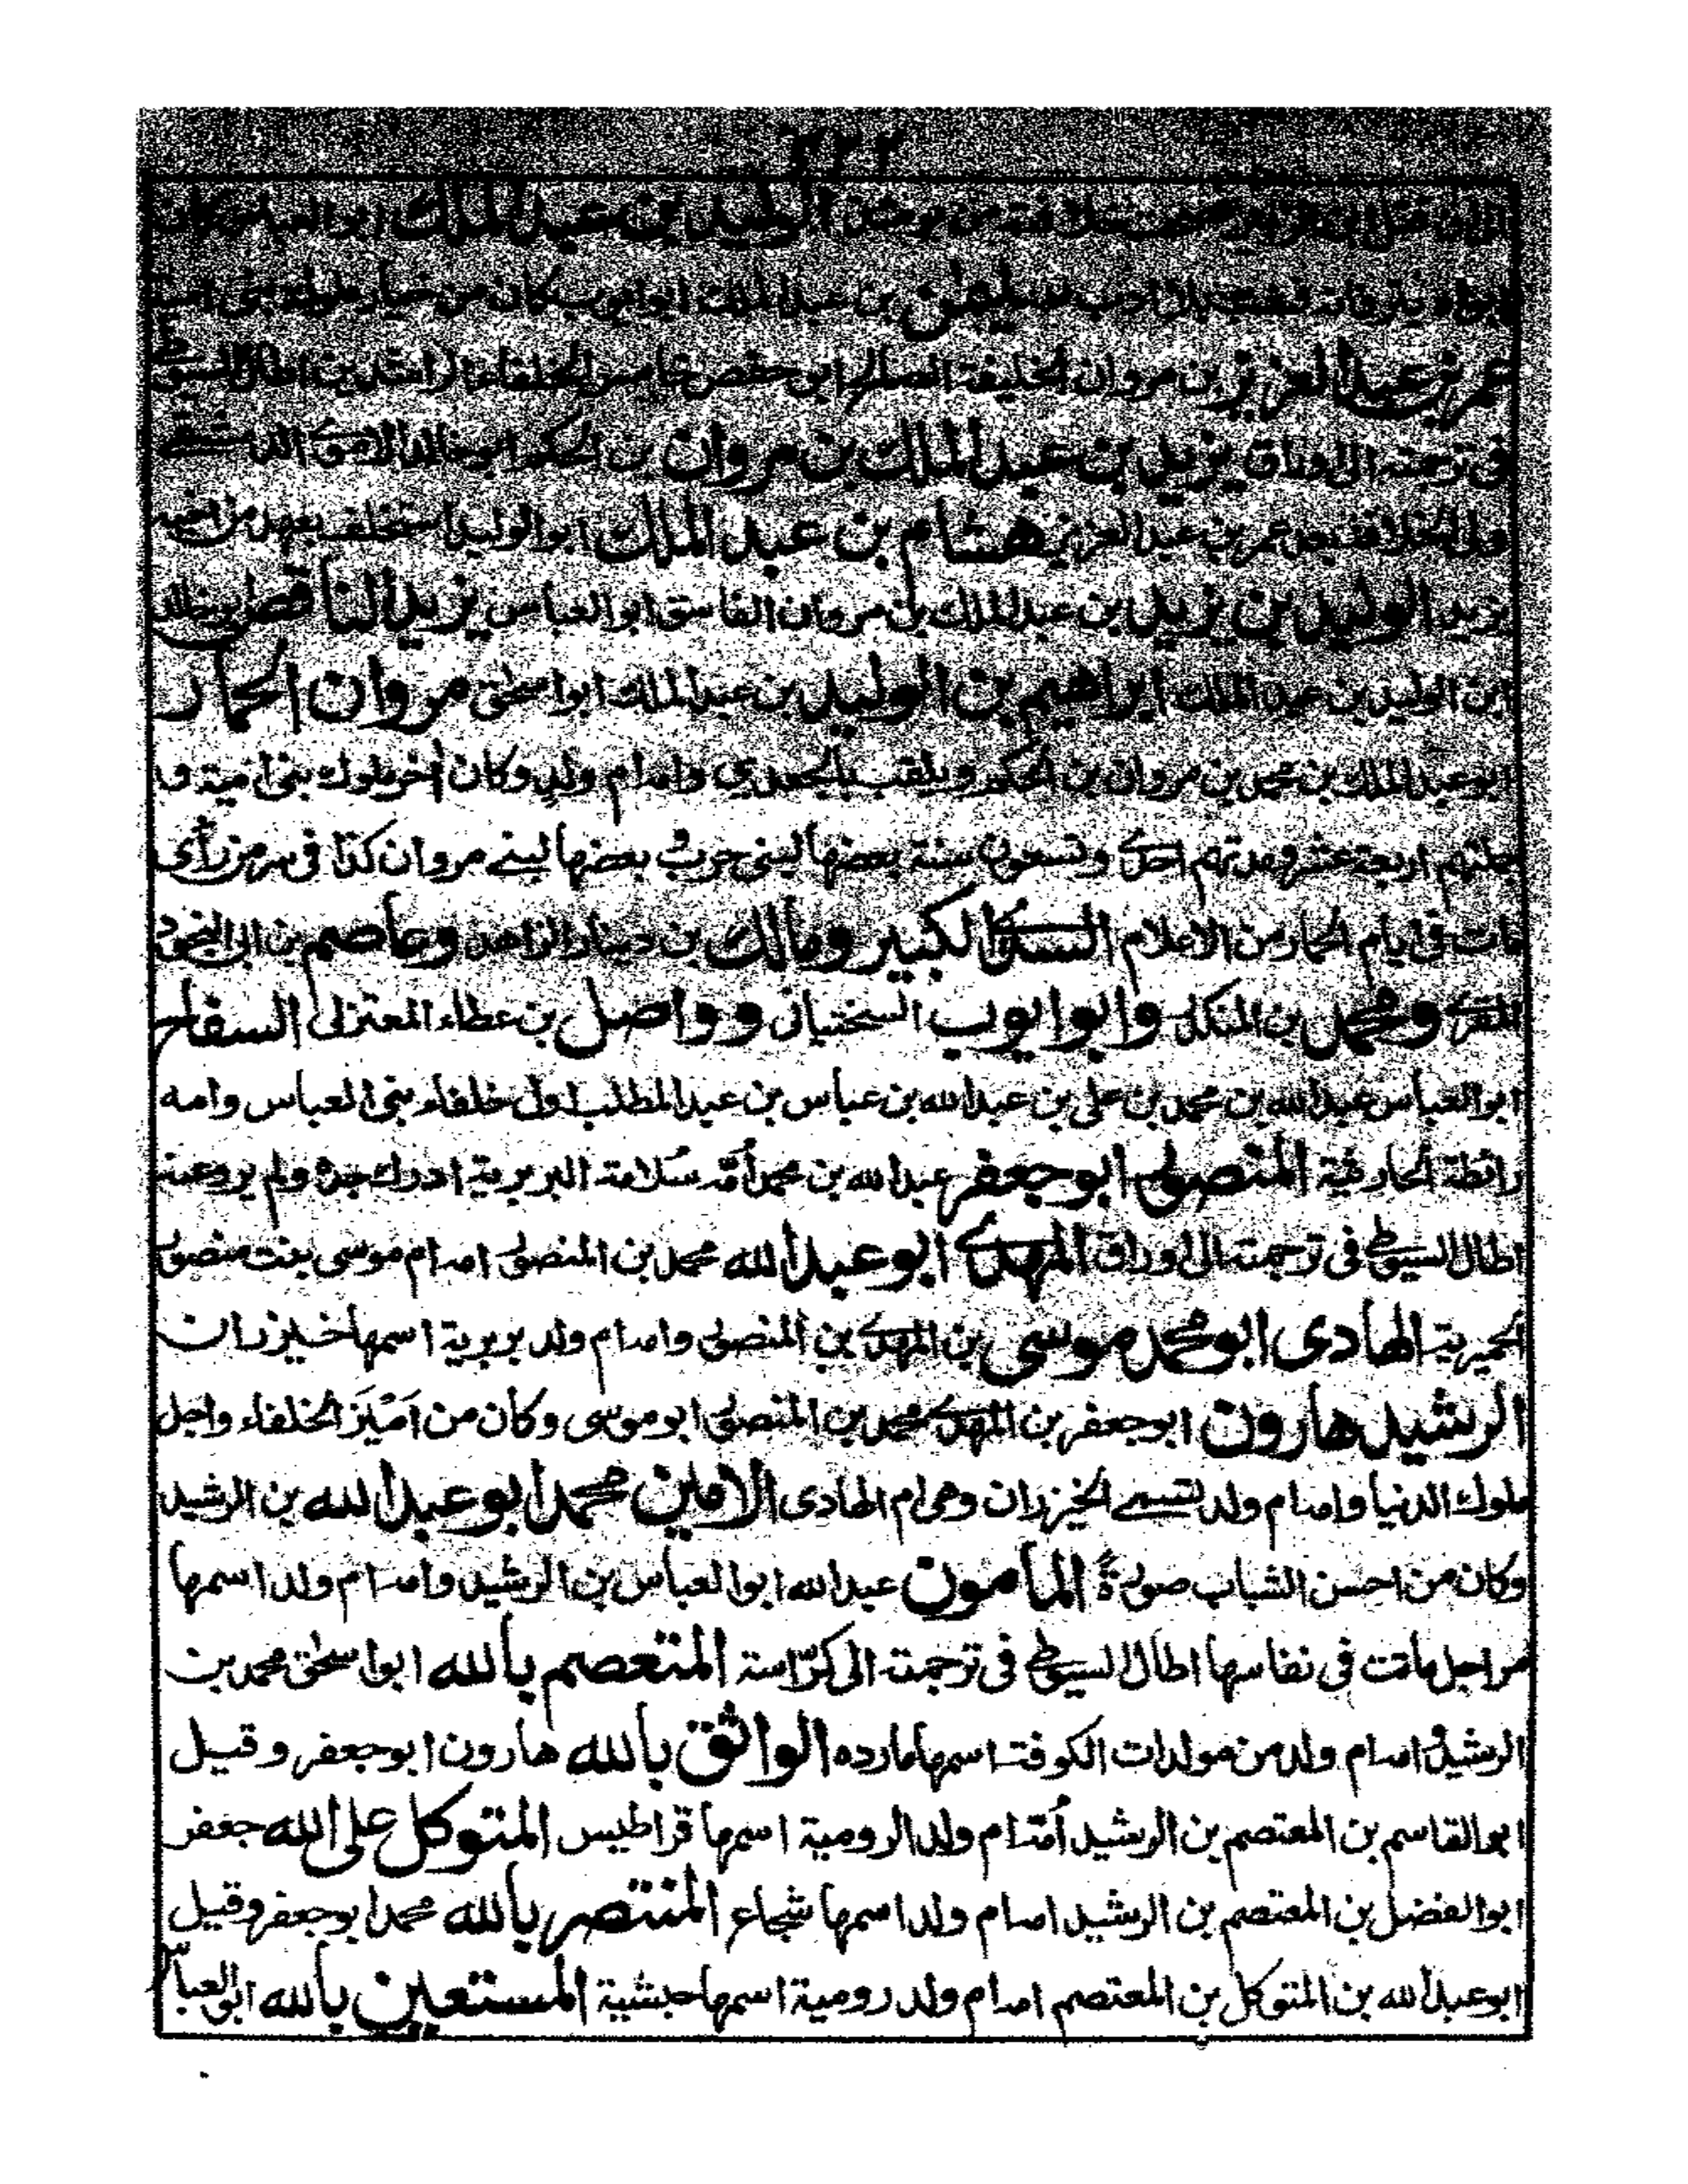 ٣٢٢
الى ان قتل ابن الزبير صحت خلافته من يومئذ الوليد بن عبد الملك ابو العباس وكان
سليمن بن عبد الملك ابو ايوب كان من خيار ملوك بنى امية
عمر بن عبد العزيز بن مروان الخليفة الصالح ابو حفص خامس الخلفاء الراشدين اطال السيوطى
فى ترجمته الى اوراق يزيد بن عبد الملك بن مروان بن الحكم ابو خالد الاموى الدمشقے
ولى الخلافة بعد عمر بن عبد العزيز هشام بن عبد الملك ابو الوليد استخلف بعهد من اخيه
يزيد الوليد بن يزيد بن عبد الملك بن مروان الفاسق ابو العباس يزيد الناقص ابو خالد
ابن الوليد بن عبد الملك ابراهيم بن الوليد بن عبد الملك ابو اسحٰق مروان الحمار
ابو عبد الملك بن محمد بن مروان بن الحكم ويلقب بالجعدي وامه ام ولد وكان اخر ملوك بنى امية و
جملتهم اربعة عشر ومدتهم احدى وتسعون سنة بعضها لبنى حرب وبعضها لبنے مروان كذا فى سر من رأى
مات فى ايام الحمار من الاعلام السدى الكبير ومالك بن دينار الزاهد وعاصم بن ابى النجود
المقرى ومحمد بن المنكدر وابو ايوب السختيانى وواصل بن عطاء المعتزلى السفاح
ابو العباس عبد الله بن محمد بن على بن عبد الله بن عباس بن عبد المطلب اول خلفاء بنى العباس وامه
رائطة الحارثية المنصور ابو جعفر عبد الله بن محمد أمّه سُلامة البربرية ادرك جده ولم يرو عنه
اطال السيوطى فى ترجمته الى اوراق المهدى ابو عبد الله محمد بن المنصور امه ام موسى بنت منصور
الحميرية الهادى ابو محمد موسى بن المهدى بن المنصور وامه ام ولد بربرية اسمها خيزران
الرشيد هارون ابو جعفر بن المهدى محمد بن المنصور ابو موسى وكان من اَمْيَز الخلفاء واجل
ملوك الدنيا وامه ام ولد تسمے الخيزران وهى ام الهادى الامين محمد ابو عبد الله بن الرشيد
وكان من احسن الشباب صورةً المأمون عبد الله ابو العباس بن الرشيد وامه ام ولد اسمها
مراجل ماتت فى نفاسها اطال السيوطى فى ترجمته الى كرّاسة المتعصم بالله ابو اسحٰق محمد بن
الرشيد وامه ام ولد من مولدات الكوفة اسمها مارده الواثق بالله هارون ابو جعفر وقيل
ابو القاسم بن المعتصم بن الرشيد أمّه ام ولد الرومية اسمها قراطيس المتوكل على الله جعفر
ابو الفضل بن المعتصم بن الرشيد امه ام ولد اسمها شجاع المنتصر بالله محمد ابو جعفر وقيل
ابو عبد الله بن المتوكل بن المعتصم امه ام ولد رومية اسمها حبشية المستعين بالله ابو العباس